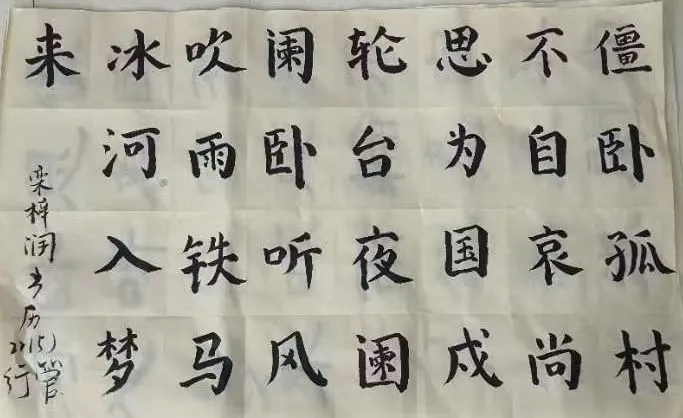 僵卧孤村
不自哀尚
思为国戍
轮台夜阑
阑卧听风
吹雨铁马
冰河入梦
来
栾梓润书历